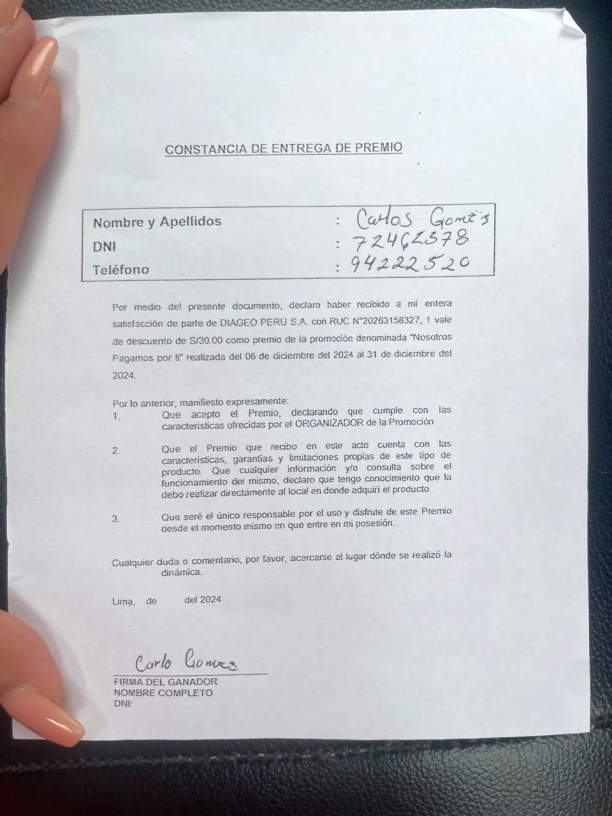 CONSTANCIA DE ENTREGA DE PREMIO
Nombre y Apellidos : Carlos Gomes
DNI : 72462378
Teléfono : 94222520
Por medio del presente documento, declaro haber recibido a mi entera
satisfacción de parte de DIAGEO PERÚ S.A. con RUC N°20263158327, 1 vale
de descuento de S/30.00 como premio de la promoción denominada "Nosotros
Pagamos por ti" realizada del 06 de diciembre del 2024 al 31 de diciembre del
2024.
Por lo anterior, manifiesto expresamente:
1. Que acepto el Premio, declarando que cumple con las
características ofrecidas por el ORGANIZADOR de la Promoción
2. Que el Premio que recibo en este acto cuenta con las
características, garantías y limitaciones propias de este tipo de
producto. Que cualquier información y/o consulta sobre el
funcionamiento del mismo, declaro que tengo conocimiento que la
debo realizar directamente al local en donde adquirí el producto
3. Que seré el único responsable por el uso y disfrute de este Premio
desde el momento mismo en que entre en mi posesión.
Cualquier duda o comentario, por favor, acercarse al lugar dónde se realizó la
dinámica.
Lima, de del 2024
Carlo Gomes
FIRMA DEL GANADOR
NOMBRE COMPLETO
DNI: